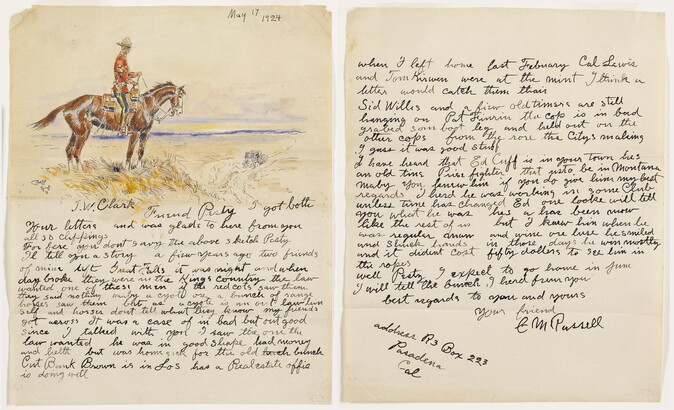 May 17 1924
J.W. Clark
Friend Pesty I got both
Your letters and was glade to here from you
all so clippings
For fear you dont savvy the above sketch Pesty
Il tell you a story a few years ago two friends
of mine left Great Falls it was night and when
day broke they were in the Kings country the law
wanted one of these men if the red cots saw them
they said nothing maby a cyote ore a bunch of range
horses saw them but as a cyote is an out law him
self and horses dont tell what they know my friends
got across It was a case of in bad but out good
since I talked with you I saw the one the
law wanted he was in good shape had money
and helth but was home sick for the old bunch
Cut Bank Brown is in Los has a Real estate offis
is doing well
when I left home last Febuary Cal Lewis
and Tom Kirwen were at the mint I think a
letter would catch them thair
Sid Willis and a fiew old timers are still
hanging on Pat Finnin the cop is in bad
grabed som boot leg and held out on the
other cops from the rore the Citys making
I guess it was good stuff
I have heard that Ed Cuff is in your town hes
an old time Prise fighter that usto be in Montana
maby you know him if you do give him my best
regards I herd he was working in some Club
unless time has changed Ed one looke will tell
you what he was hes a has been now
like the rest of us but I knew him when he
was regular man and wine ore lose he smiled
and shuck hands in those days he win mostly
and it dident cost fifty dollars to see him in
the ropes
well Pesty I expect to go home in june
I will tell the bunch I heard from you
best regards to you and yours
Your friend
C M Russell
address R3 Box 223
Pasadena
Cal